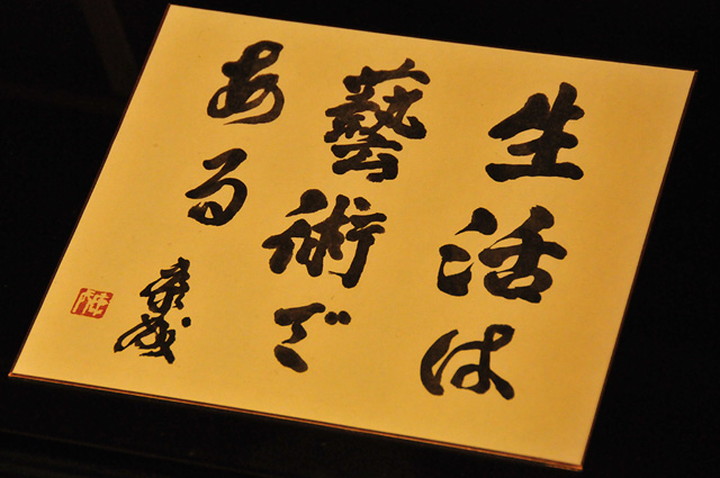 生活は
藝術で
ある